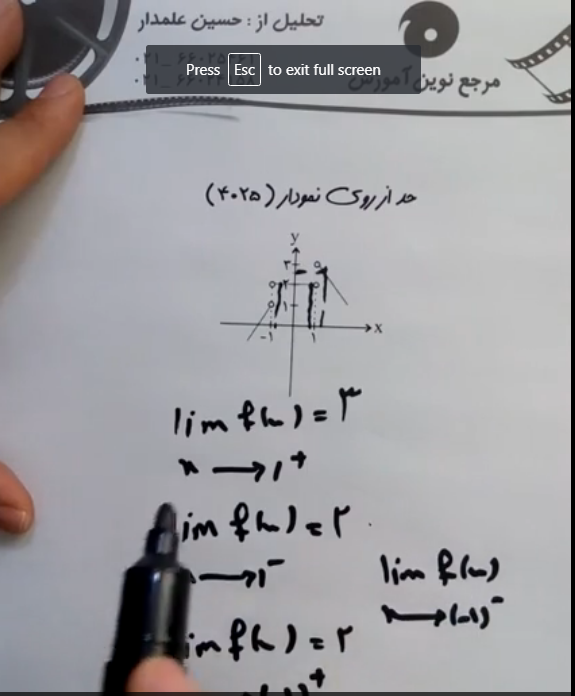 تحلیل از : حسین علمدار
Press Esc to exit full screen
مرجع نوین آموزش
حد از روی نمودار (۴۰۲۵)
y
۳
۲
۱
-۱ ۱ x
lim f(x) = ۳
x → ۱⁺
lim f(x) = ۲
x → ۱⁻
lim f(x)
x → (-۱)⁻
lim f(x) = ۲
(-۱)⁺